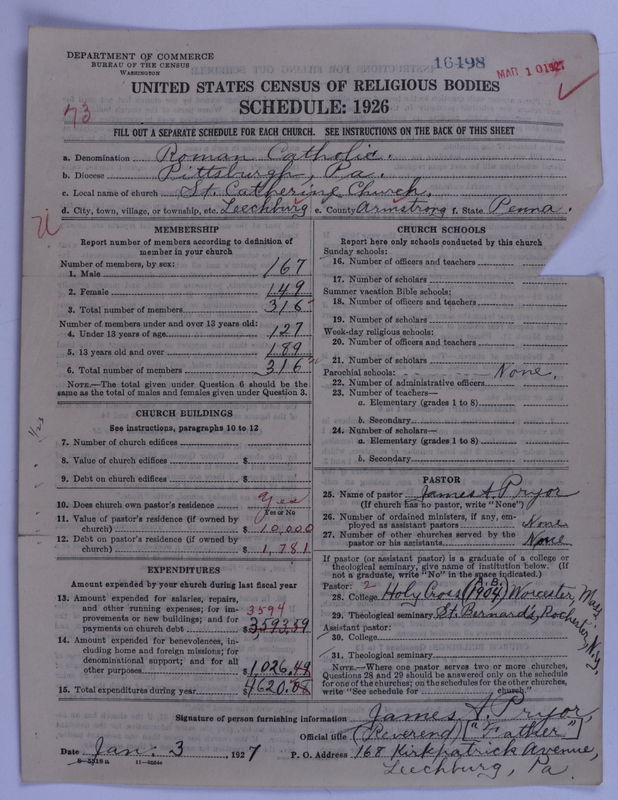 DEPARTMENT OF COMMERCE
BUREAU OF THE CENSUS
WASHINGTON
16498
MAR 10 1927
UNITED STATES CENSUS OF RELIGIOUS BODIES
SCHEDULE: 1926
73
FILL OUT A SEPARATE SCHEDULE FOR EACH CHURCH. SEE INSTRUCTIONS ON THE BACK OF THIS SHEET
a. Denomination Roman Catholic.
b. Diocese Pittsburgh, Pa.
c. Local name of church St. Catherine Church.
d. City, town, village, or township, etc. Leechburg e. County Armstrong f. State Penna.
MEMBERSHIP
Report number of members according to definition of
member in your church
Number of members, by sex:
1. Male 167
2. Female 149
3. Total number of members 316
Number of members under and over 13 years old:
4. Under 13 years of age 127
5. 13 years old and over 189
6. Total number of members 316
NOTE.—The total given under Question 6 should be the
same as the total of males and females given under Question 3.
1/23
CHURCH BUILDINGS
See instructions, paragraphs 10 to 12
7. Number of church edifices
8. Value of church edifices $
9. Debt on church edifices $
10. Does church own pastor's residence Yes
Yes or No
11. Value of pastor's residence (if owned by
church) $ 10,000
12. Debt on pastor's residence (if owned by
church) $ 1,781
EXPENDITURES
Amount expended by your church during last fiscal year
13. Amount expended for salaries, repairs,
and other running expenses; for im-
provements or new buildings; and for
payments on church debt $ 3593.59
3594
14. Amount expended for benevolences, in-
cluding home and foreign missions; for
denominational support; and for all
other purposes $ 1026.49
15. Total expenditures during year $ 4620.08
CHURCH SCHOOLS
Report here only schools conducted by this church
Sunday schools:
16. Number of officers and teachers
17. Number of scholars
Summer vacation Bible schools:
18. Number of officers and teachers
19. Number of scholars
Week-day religious schools:
20. Number of officers and teachers
21. Number of scholars
Parochial schools: None.
22. Number of administrative officers
23. Number of teachers—
a. Elementary (grades 1 to 8)
b. Secondary
24. Number of scholars—
a. Elementary (grades 1 to 8)
b. Secondary
PASTOR
25. Name of pastor James A. Pryor
(If church has no pastor, write "None")
26. Number of ordained ministers, if any, em-
ployed as assistant pastors None
27. Number of other churches served by the
pastor or his assistants None
If pastor (or assistant pastor) is a graduate of a college or
theological seminary, give name of institution below. (If
not a graduate, write "No" in the space indicated.)
Pastor: 2
28. College Holy Cross (A.B. 1904) Worcester, Mass.
29. Theological seminary St. Bernard's, Rochester, N.Y.
Assistant pastor:
30. College
31. Theological seminary
NOTE.—Where one pastor serves two or more churches,
Questions 28 and 29 should be answered only on the schedule
for one of the churches; on the schedules for the other churches,
write "See schedule for church."
Signature of person furnishing information James A. Pryor,
Official title (Reverend) ["Father"]
Date Jan. 3, 1927 P. O. Address 168 Kirkpatrick Avenue,
8—5318a 11—8664
Leechburg, Pa.